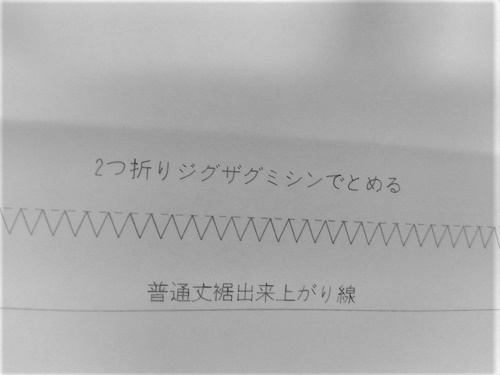 2つ折りジグザグミシンでとめる
普通丈裾出来上がり線